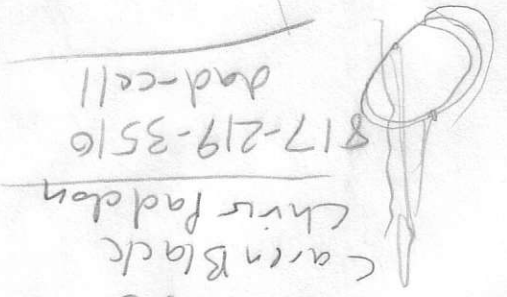 Caren Black
Chris Paddon
817-219-3510
dad-cell